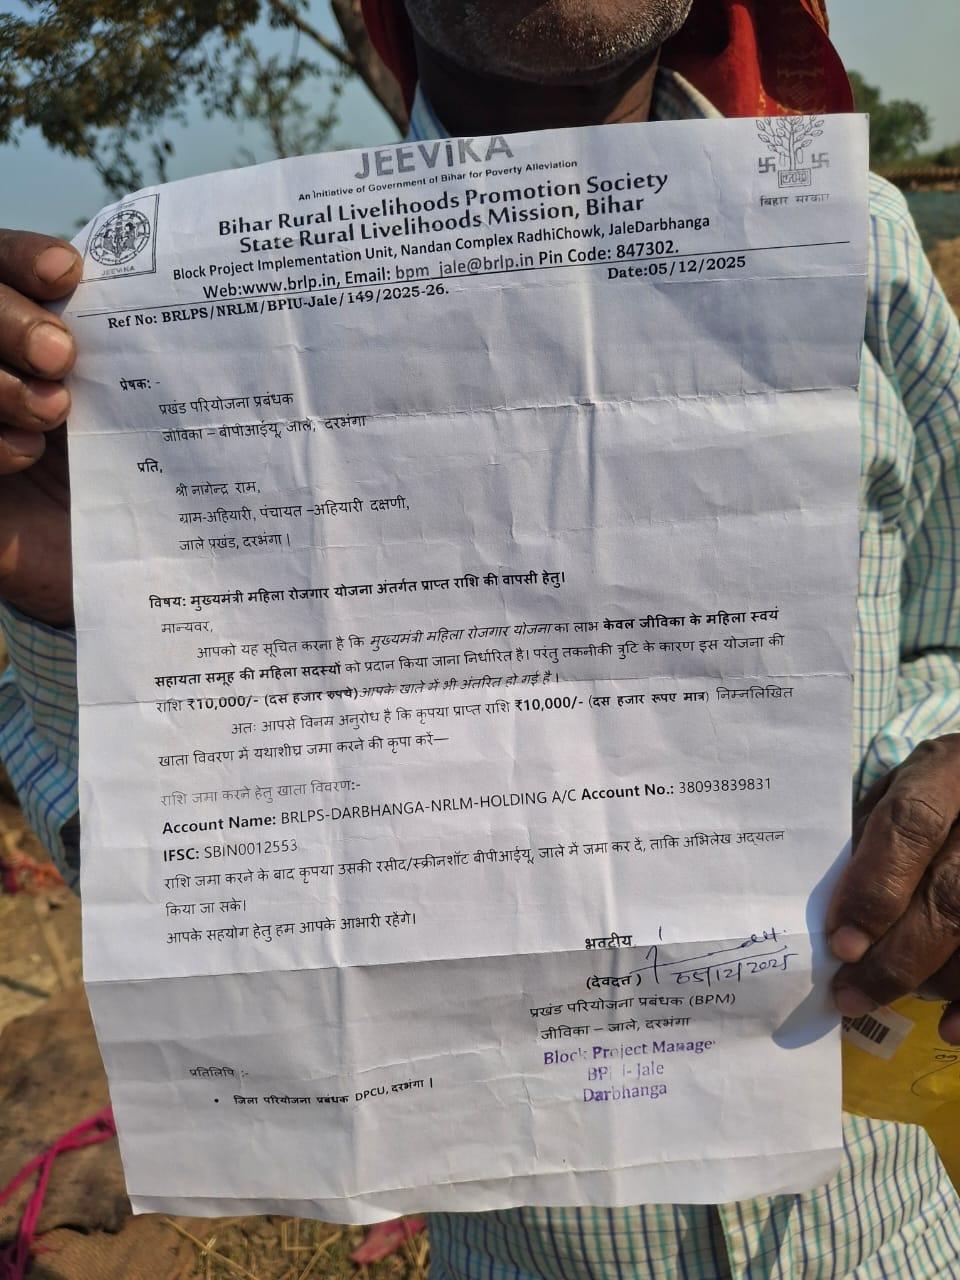 JEEViKA
An Initiative of Government of Bihar for Poverty Alleviation
Bihar Rural Livelihoods Promotion Society
State Rural Livelihoods Mission, Bihar
Block Project Implementation Unit, Nandan Complex RadhiChowk, JaleDarbhanga
Web:www.brlp.in, Email: bpm_jale@brlp.in Pin Code: 847302.
JEEViKA
बिहार सरकार
Ref No: BRLPS/NRLM/BPIU-Jale/149/2025-26.
Date:05/12/2025
प्रेषक: -
प्रखंड परियोजना प्रबंधक
जीविका – बीपीआईयू, जाले, दरभंगा
प्रति,
श्री नागेन्द्र राम,
ग्राम-अहियारी, पंचायत –अहियारी दक्षणी,
जाले प्रखंड, दरभंगा।
विषय: मुख्यमंत्री महिला रोजगार योजना अंतर्गत प्राप्त राशि की वापसी हेतु।
मान्यवर,
आपको यह सूचित करना है कि मुख्यमंत्री महिला रोजगार योजना का लाभ केवल जीविका के महिला स्वयं
सहायता समूह की महिला सदस्यों को प्रदान किया जाना निर्धारित है। परंतु तकनीकी त्रुटि के कारण इस योजना की
राशि ₹10,000/- (दस हजार रुपये) आपके खाते में भी अंतरित हो गई है।
अतः आपसे विनम्र अनुरोध है कि कृपया प्राप्त राशि ₹10,000/- (दस हजार रूपए मात्र) निम्नलिखित
खाता विवरण में यथाशीघ्र जमा करने की कृपा करें—
राशि जमा करने हेतु खाता विवरण:-
Account Name: BRLPS-DARBHANGA-NRLM-HOLDING A/C Account No.: 38093839831
IFSC: SBIN0012553
राशि जमा करने के बाद कृपया उसकी रसीद/स्क्रीनशॉट बीपीआईयू, जाले में जमा कर दें, ताकि अभिलेख अद्यतन
किया जा सके।
आपके सहयोग हेतु हम आपके आभारी रहेंगे।
भवदीय
05/12/2025
(देवदत्त)
प्रखंड परियोजना प्रबंधक (BPM)
जीविका – जाले, दरभंगा
Block Project Manage
BPI I-Jale
Darbhanga
प्रतिलिपि :-
• जिला परियोजना प्रबंधक DPCU, दरभंगा।